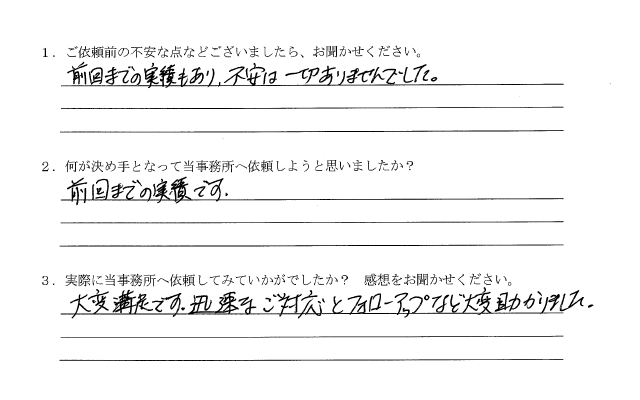 １．ご依頼前の不安な点などございましたら、お聞かせください。
前回までの実績もあり、不安は一切ありませんでした。
２．何が決め手となって当事務所へ依頼しようと思いましたか？
前回までの実績です。
３．実際に当事務所へ依頼してみていかがでしたか？　感想をお聞かせください。
大変満足です。迅速なご対応とフォローアップなど大変助かりました。